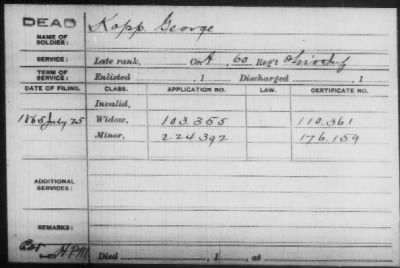 DEAD
NAME OF SOLDIER: Kopp, George
SERVICE: Late rank, Co. A, 60 Reg't Ohio Inf
TERM OF SERVICE: Enlisted , 1 Discharged , 1
DATE OF FILING. CLASS. APPLICATION NO. LAW. CERTIFICATE NO.
Invalid,
1865 July 25 Widow, 103.355 110.361
Minor, 224.392 176.159
ADDITIONAL SERVICES:
REMARKS:
Died , 1 , at